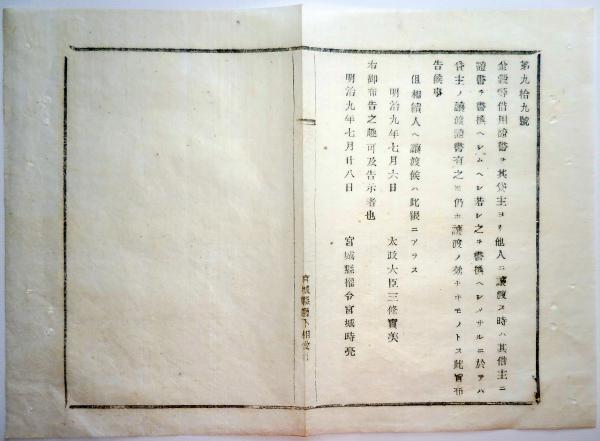 第九拾九號
金穀等借用證書ヲ其貸主ヨリ他人ニ讓渡ス時ハ其借主ニ
證書ヲ書換ヘシムヘシ若シ之ヲ書換ヘシメサルニ於テハ
貸主ノ讓渡證書有之モ仍ホ讓渡ノ効ナキモノトス此旨布
告候事
但相續人ヘ讓渡候ハ此限ニアラス
明治九年七月六日
太政大臣三條實美
右御布告之趣可及告示者也
明治九年七月廿八日
宮城縣權令宮城時亮
宮城縣